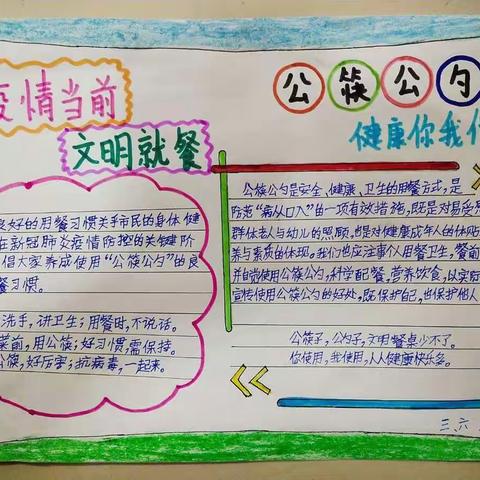 疫情当前
文明就餐
良好的用餐习惯关乎市民的身体健
在新冠肺炎疫情防控的关键阶
倡大家养成使用“公筷公勺”的良
餐习惯。
洗手，讲卫生；用餐时，不说话。
菜前，用公筷；好习惯，需保持。
公筷，好厉害；抗病毒，一起来。
公筷公勺
健康你我他
公筷公勺是安全、健康、卫生的用餐方式，是
防范“病从口入”的一项有效措施，既是对易受
群体老人与幼儿的照顾，也是对健康成年人的体贴
养与素质的体现。我们也应注重个人用餐卫生，餐前
并自觉使用公筷公勺，科学配餐，营养饮食，以实际
宣传使用公筷公勺的好处，既保护自己，也保护他人
公筷子，公勺子，文明餐桌少不了。
你使用，我使用，人人健康快乐多。
三、六